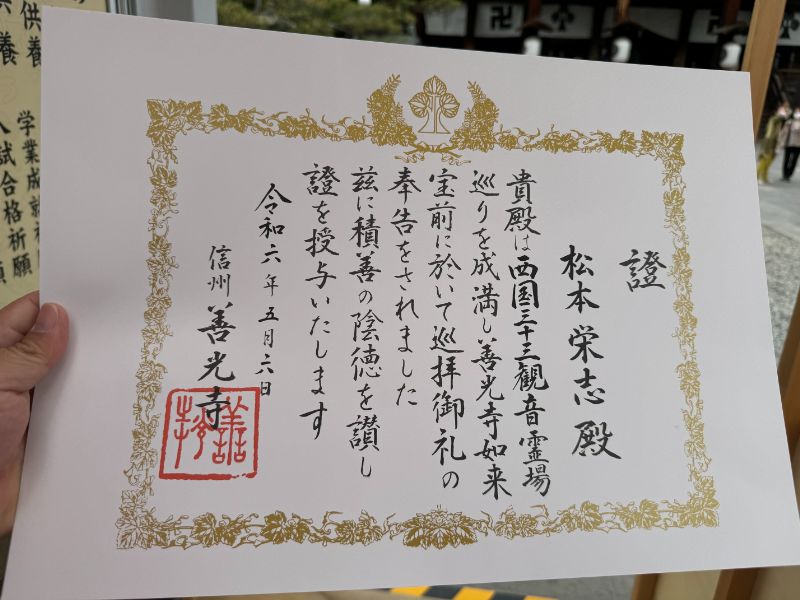 證
松本栄志殿
貴殿は西国三十三観音霊場
巡りを成満し善光寺如来
宝前に於いて巡拝御礼の
奉告をされました
茲に積善の陰徳を讃し
證を授与いたします
令和六年五月六日
信州善光寺
供養
学業成就
入試合格祈願
供養